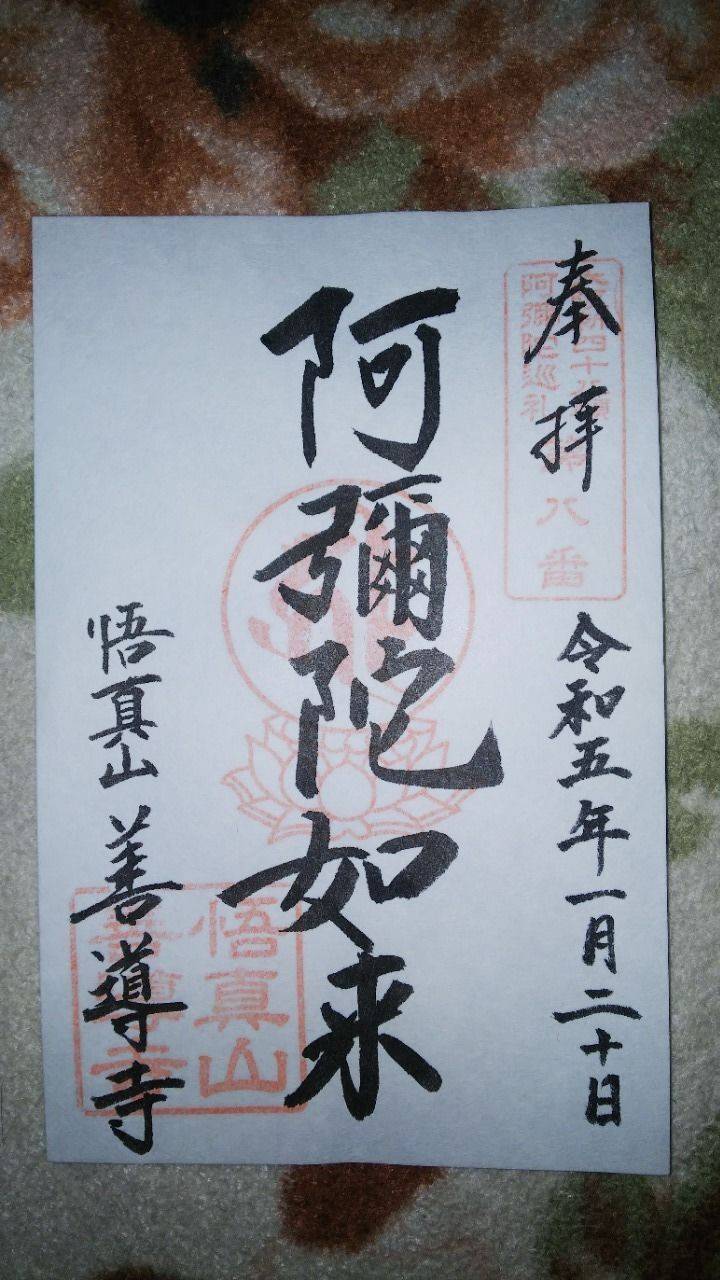 奉拝
令和五年一月二十日
阿彌陀如来
悟真山 善導寺
四十八願
阿彌陀巡礼
第八番
悟真山
善導寺